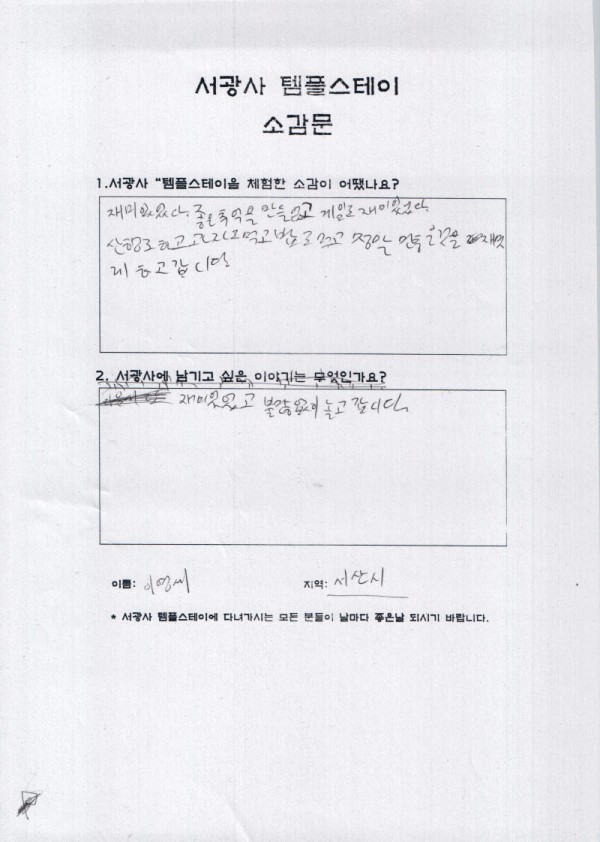 서광사 템플스테이
소감문
1.서광사 "템플스테이을 체험한 소감이 어땠나요?
재미있었다. 좋은추억을 만들었고 게임도 재미있었다.
산행도 하고 먹고 밥도 먹고 정말
고 갑니다
2. 서광사에 남기고 싶은 이야기는 무엇인가요?
재미있었고 불량없이 놀고 갑니다
이름:
지역: 서산시
* 서광사 템플스테이에 다녀가시는 모든 분들이 날마다 좋은날 되시기 바랍니다.